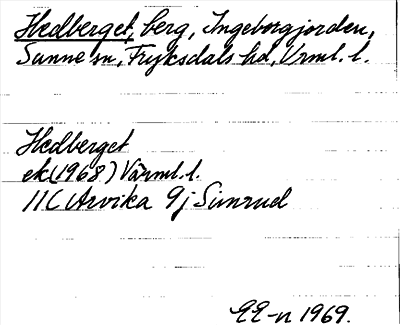 Hedberget, berg, Ingeborgjorden,
Sunne sn, Fryksdals hd, Vrml. l.
Hedberget
ek (1968) Värml. l.
11C Arvika 9j Sunrud
EE-n 1969.